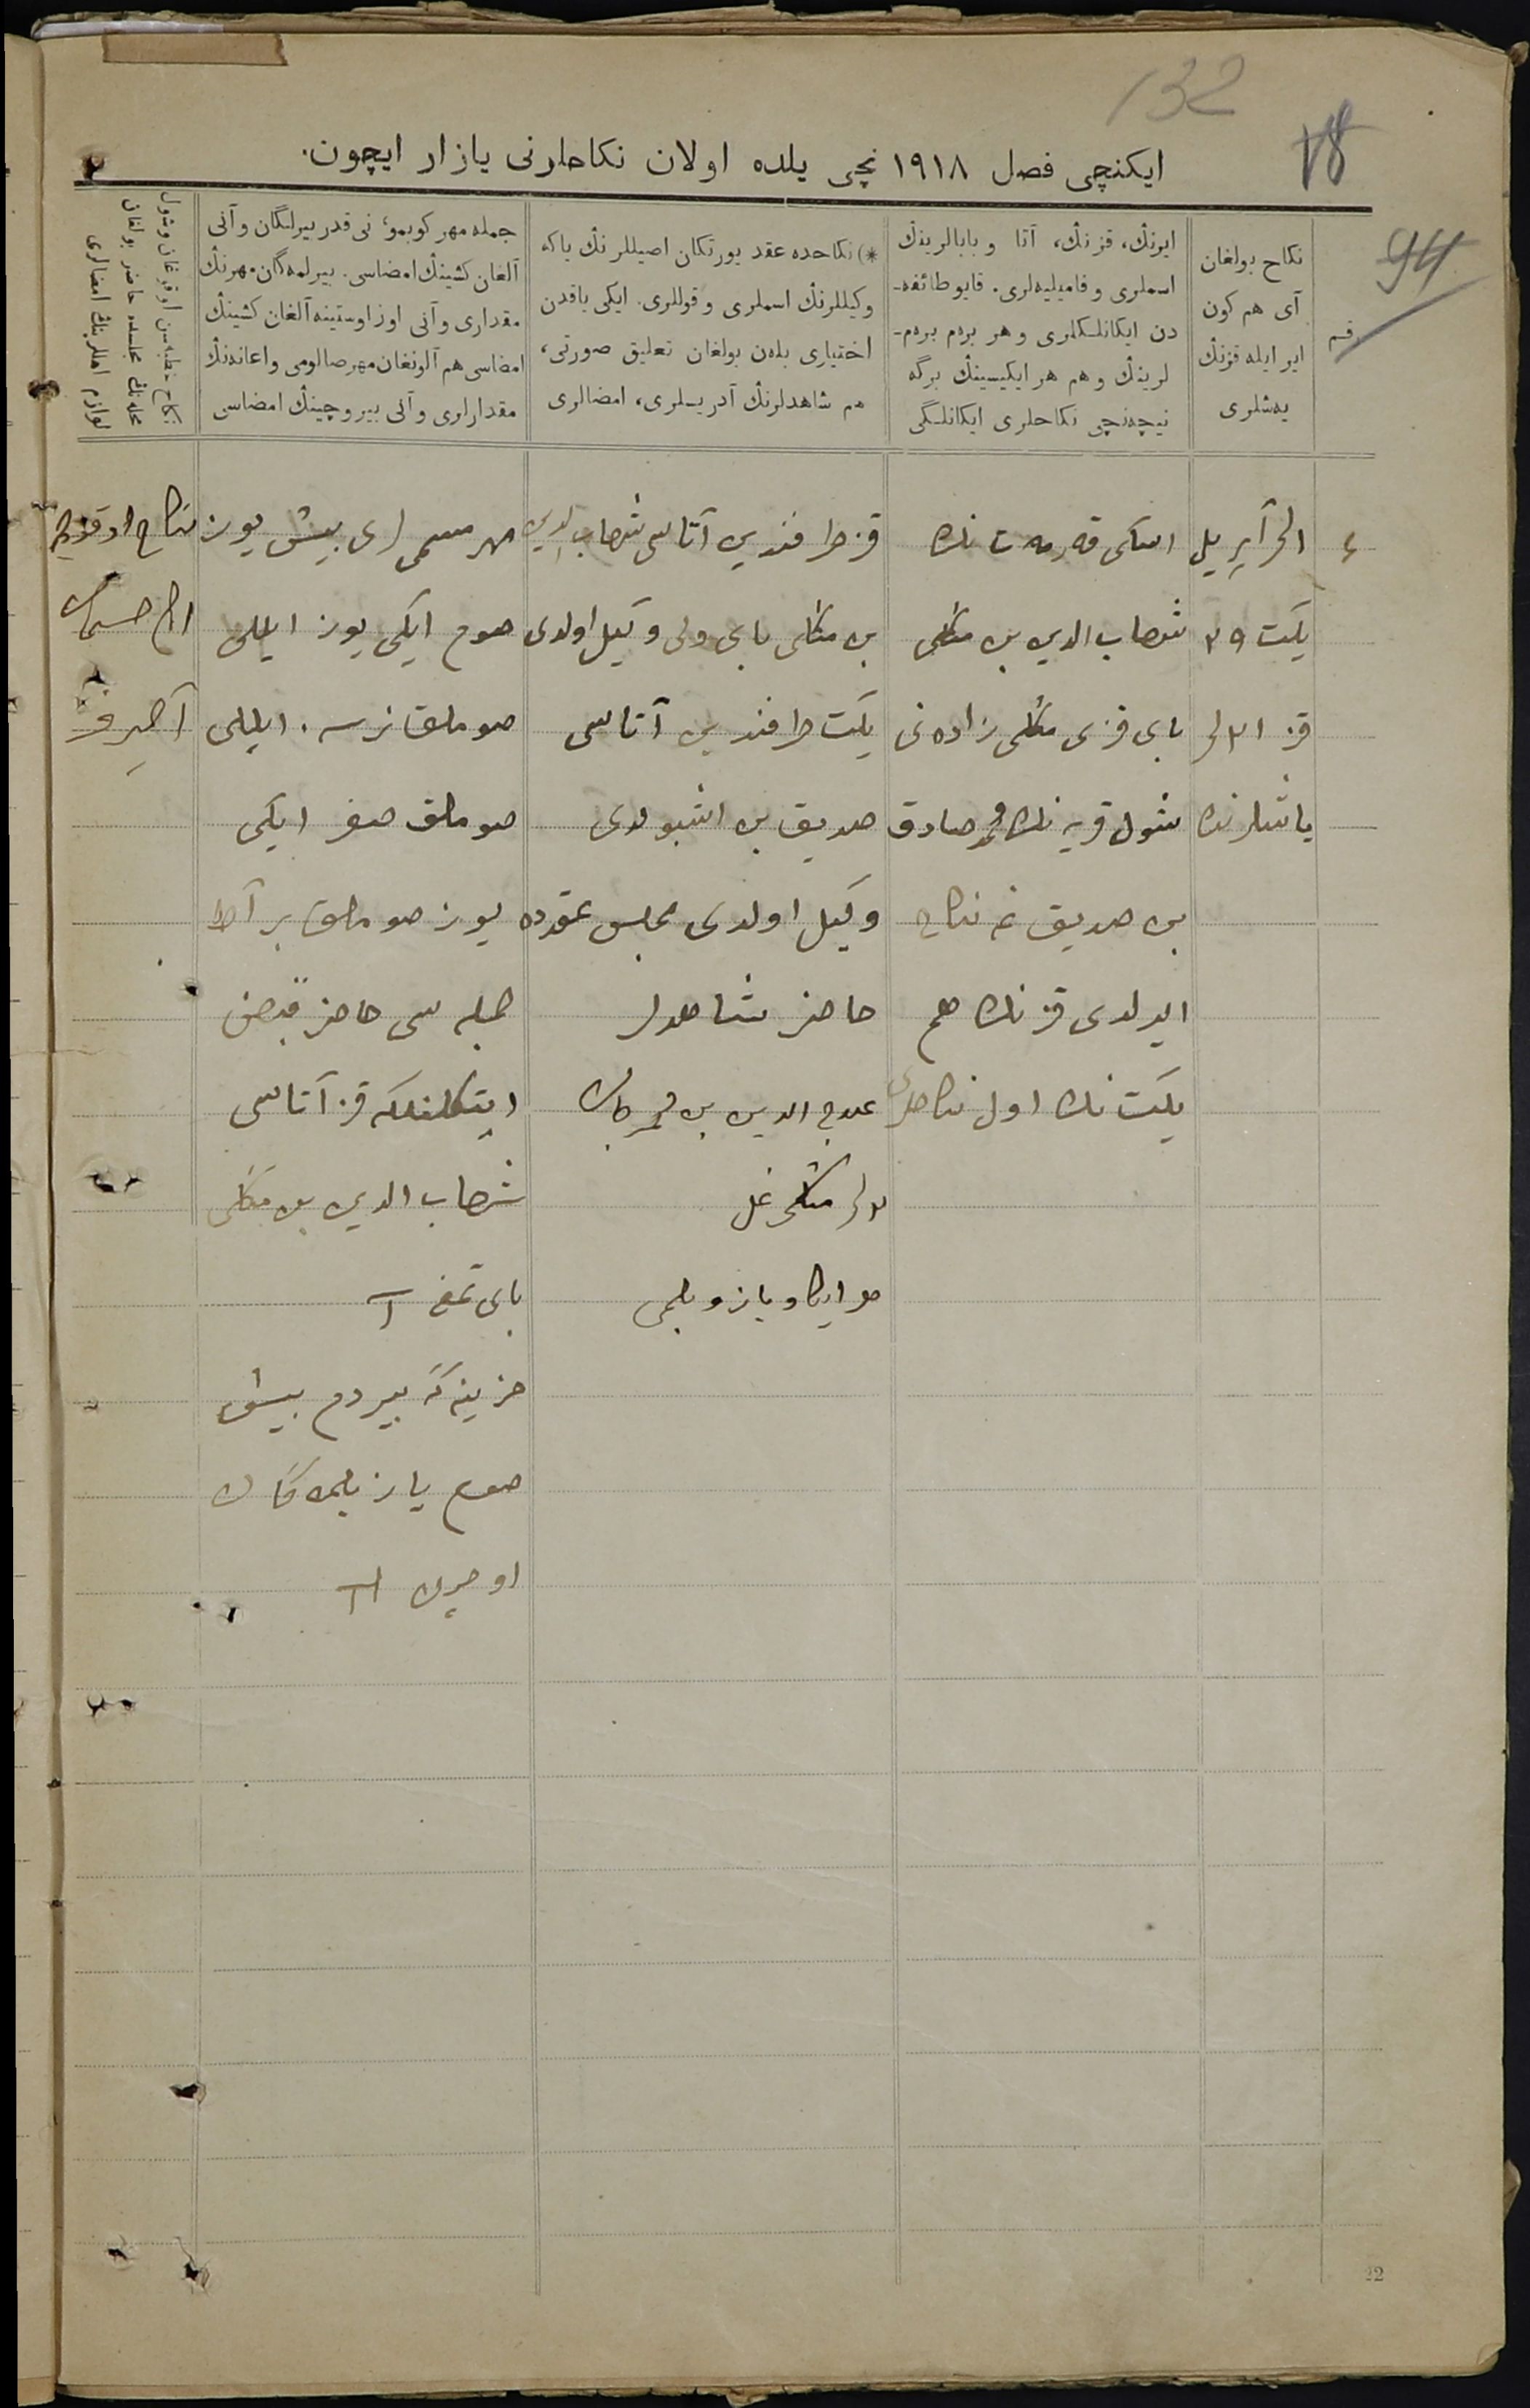 132
78
94
ایکنچی فصل ١٩١٨ نچی یلده اولان نکاحلرنی یازار ایچون.
رقم
نکاح بولغان
آی هم کون
ایر ایله قزنڭ
یەشلری
ایرنڭ، قزنڭ، آتا و بابالرینڭ
اسملری و فامیلیه‌لری. قایو طائفه-
دن ایکانلکلری و هر بردم بردم-
لرینڭ و هم هر ایکیسینڭ برگه
نیچه‌نچی نکاحلری ایکانلگی
*) نکاحده عقد یورتکان اصیللرنڭ یاکه
وکیللرنڭ اسملری و قوللری. ایکی یاقدن
اختیاری بله‌ن بولغان تعلیق صورتی،
هم شاهدلرنڭ آدریسلری، امضالری
جمله مهر کوبمو، نی قدر بیرلگان و آنی
آلغان کشینڭ امضاسی. بیرلمه‌گان مهرنڭ
مقداری و آنی اوز اوستینه آلغان کشینڭ
امضاسی هم آلونغان مهر صالومی و اعانه‌نڭ
مقدارلری و آلی بیروچینڭ امضاسی
نکاح خطبه‌سن اوقوغان و شول
محله‌نڭ مجلسده حاضر بولغان
لوازم اهللرینڭ امضالری
٤
آپریل
یکت ٢٩
قز ٢١ لر
یاشلرنده
اسکی قه‌رمه‌ت نڭ
شهاب الدین بن منکلی
بای قزی منکلی زاده نی
شول قریه نڭ محمد صادق
بن صدیق غه نکاح
ایدلدی قز نڭ هم
یکت نڭ اول نکاحلری
قز طرفندین آتاسی شهاب الدین
بن منکلی بای ولی وکیل اولدی
یکت طرفندین آتاسی
صدیق بن اشبولدی
وکیل اولدی مجلس عقدده
حاضر شاهدلر
بن محمد جان
منکلی غل
مهر مسمی لری بیش یوز
صوم ایکی یوز ایللی
صوملق نرسه. ایللی
صوملق صغر ایکی
یوز صوملق بر آط
جمله سی حاضر قبض
ایتکلنکه قز آتاسی
شهاب الدین بن منکلی
بای تمغا سی
خزینه که بیردم بیش
صوم یاز بلمه گان
نکاح اوقوچی
امام
22